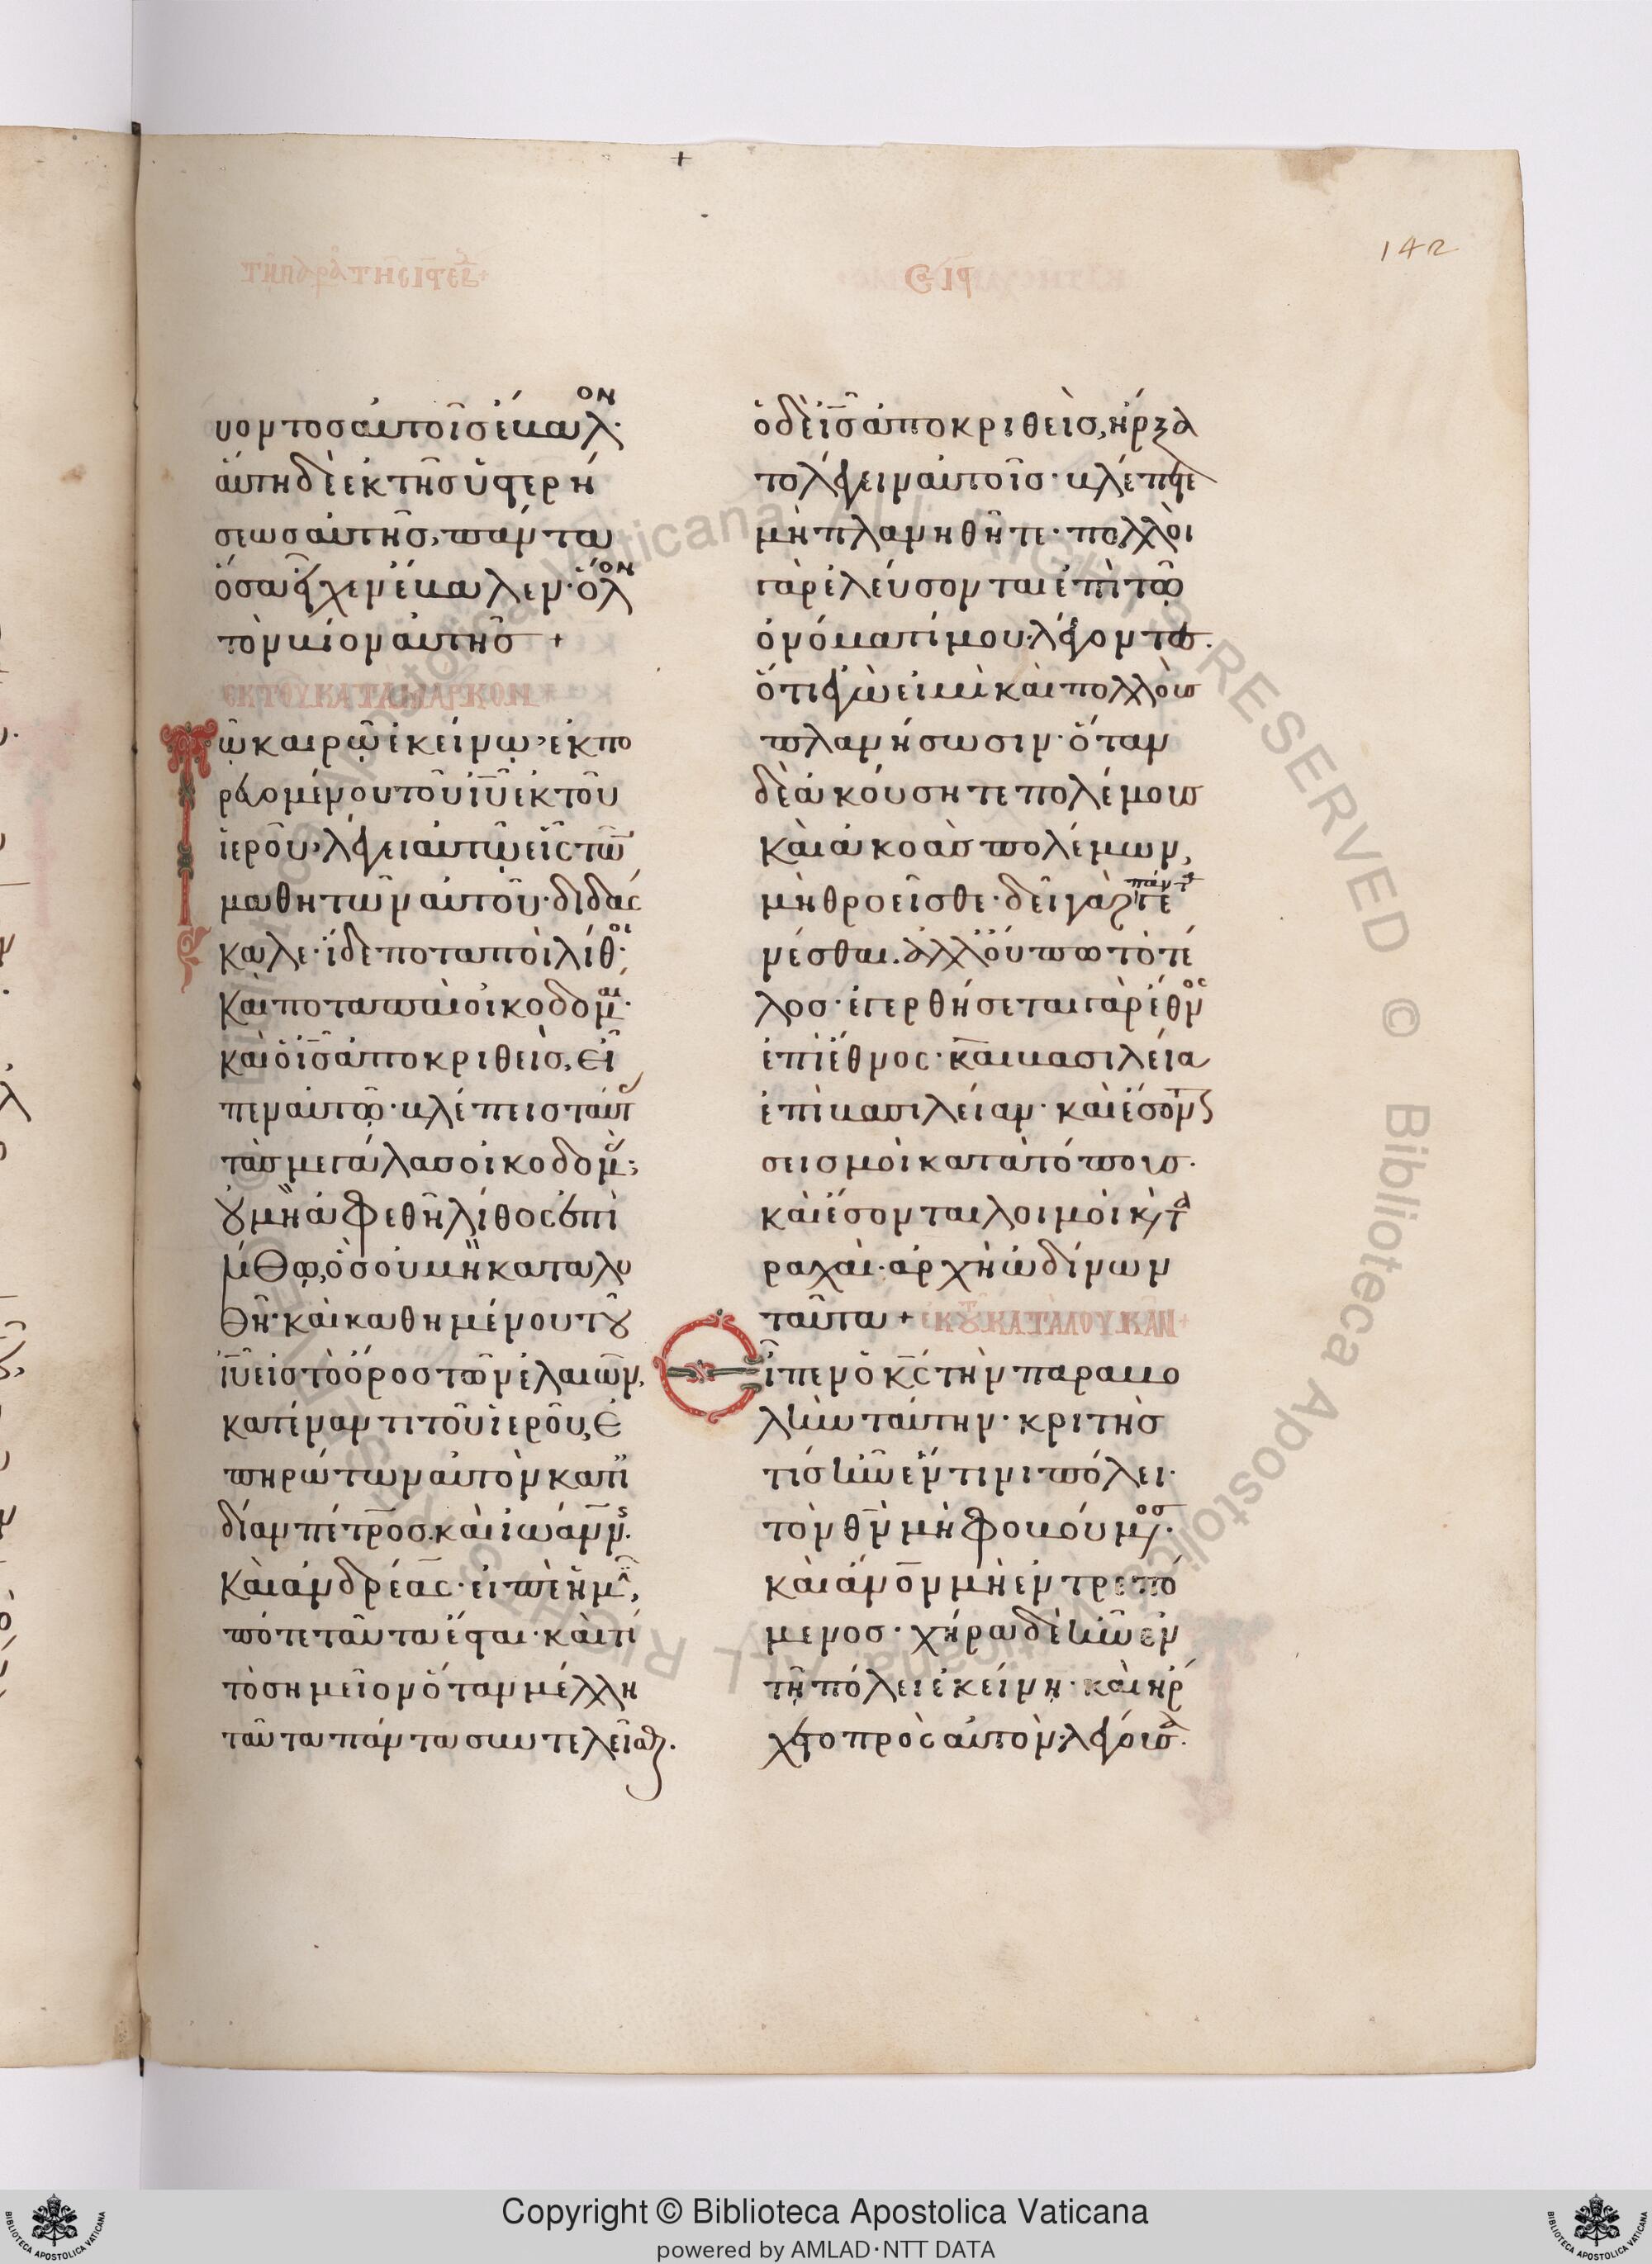 142
τῇ παρα τῆς ις εβ +
ϵ ις
υοντοσ αὐτοῖσ ἔβαλον·
ἅυτη δὲ ἐκ τῆσ ὑστερή
σεωσ ἀυτῆσ, πάντα
ὅσα εἶχεν ἔβαλεν· ὅλον
τὸν βίον ἀυτῆσ +
ΕΚ ΤΟΥ ΚΑΤΑ ΜΑΡΚΟΝ +
Τῶ καιρῶ ἐκείνω, ἐκπο
ρευομένου τοῦ ιυ ἐκ τοῦ
ἱεροῦ, λέγει αυτῶ εἷς τῶν
μαθητῶν αυτοῦ· διδάσ
καλε· ἴδε ποταποὶ λίθοι·
και ποταπαὶ οἰκοδομαί·
καὶ ὁ ισ ἀποκριθεὶσ, εἶ
πεν αυτῶ· βλέπεισ ταύτ
τὰσ μεγάλασ οἰκοδομάς;
ȣ μὴ ἀφεθῆ λίθος ἐπὶ
λίθω, ὃσ οὐ μὴ καταλυ
θῆ· καὶ καθημένου τȣ
ιυ εἰσ τὸ ὄροσ τῶν ἐλαιῶν,
κατέναντι τοῦ ἱεροῦ, ἐ
πηρώτων αὐτὸν κατι
δίαν πέτροσ. καὶ ἰωάνν.
καὶ ἀνδρέας· εἰπὲ ἡμῖν,
πότε ταῦτα ἔσται· καὶ τί
τὸ σημεῖον ὅταν μέλλη
ταῦτα πάντα συντελεῖσθαι.
ὁ δὲ ισ ἀποκριθεὶσ, ἤρξα
το λέγειν αυτοῖσ· βλέπετε
μὴ πλανηθῆτε· πολλοὶ
γὰρ ἐλεύσονται ἐπὶ τῶ
ὀνόματί μου· λέγοντεσ.
ὅτι ἐγώ εἰμι καὶ πολλοὺσ
πλανήσωσιν· ὅταν
δὲ ἀκούσητε πολέμουσ
καὶ ἀκοὰσ πολέμων,
μὴ θροεῖσθε· δεῖ γὰρ πάντα γε
νέσθαι. ἀλλ' ούπω τὸ τέ
λοσ· ἐγερθήσεται γὰρ ἔθνος
ἐπὶ ἔθνος· καὶ βασιλεία
ἐπὶ βασιλείαν· καὶ ἔσοντ
σεισμοὶ κατὰ τόπουσ·
καὶ ἔσονται λοιμοὶ κ τα
ραχαὶ· ἀρχὴ ὠδίνων
ταῦτα + ΕΚ Τȣ ΚΑΤΑ ΛΟΥΚΑΝ +
Εἶπεν ὁ κς τὴν παραβο
λὴν ταύτην· κριτὴσ
τίσ ἦν ἔν τινι πόλει·
τὸν θν μὴ φοβούμενοσ·
καὶ ἄνον μὴ ἐντρεπό
μενοσ· χήρα δὲ ἦν ἐν
τῆ πόλει ἐκείνη· καὶ ἤρ
χετο πρὸς αὐτὸν, λέγουσα·
Copyright © Biblioteca Apostolica Vaticana
powered by AMLAD·NTT DATA